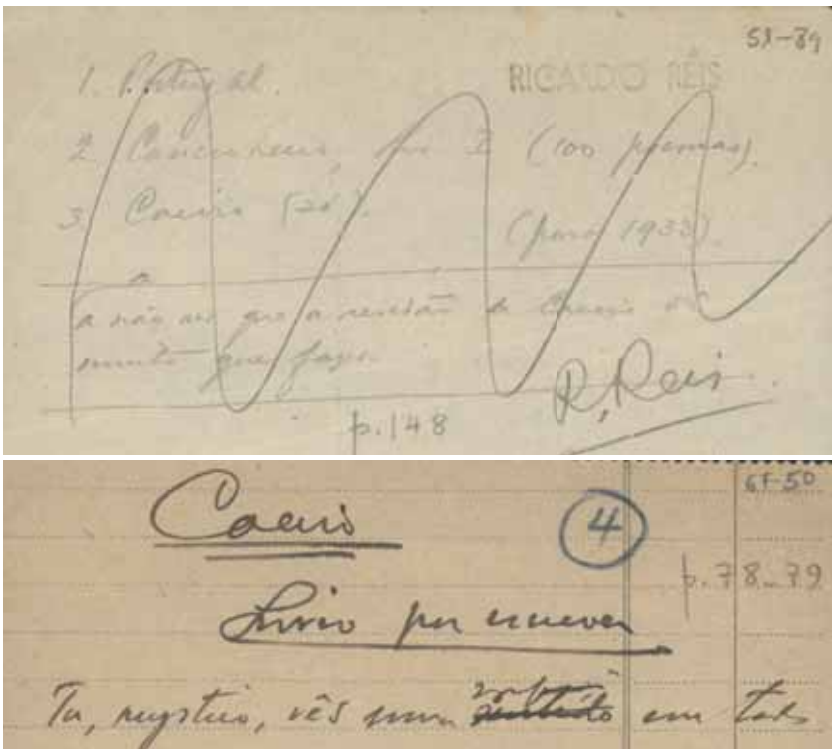 51-89
1. Portugal.
RICARDO REIS
2. Cancioneiro, Liv I (100 poemas).
3. Caeiro (
(para 1933).
a não ser que a revisão de Caeiro dê
muito que fazer.
R. Reis
p. 148
Caeiro
4
67-50
p. 78-79
Livro por escrever
Tu, mystico, vês uma em todas